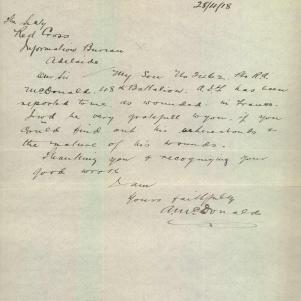 25/11/18
The Secty
Red Cross
Information Bureau
Adelaide
Dear Sir My Son No R.A.
McDonald 48th Battalion. A.I.F. has been
reported to me as wounded in France.
I w'd be very gratefull to you if you
could find out his whereabouts &
the nature of his wounds.
Thanking you & recognizing your
good work
I am
Yours faithfully
A McDonald